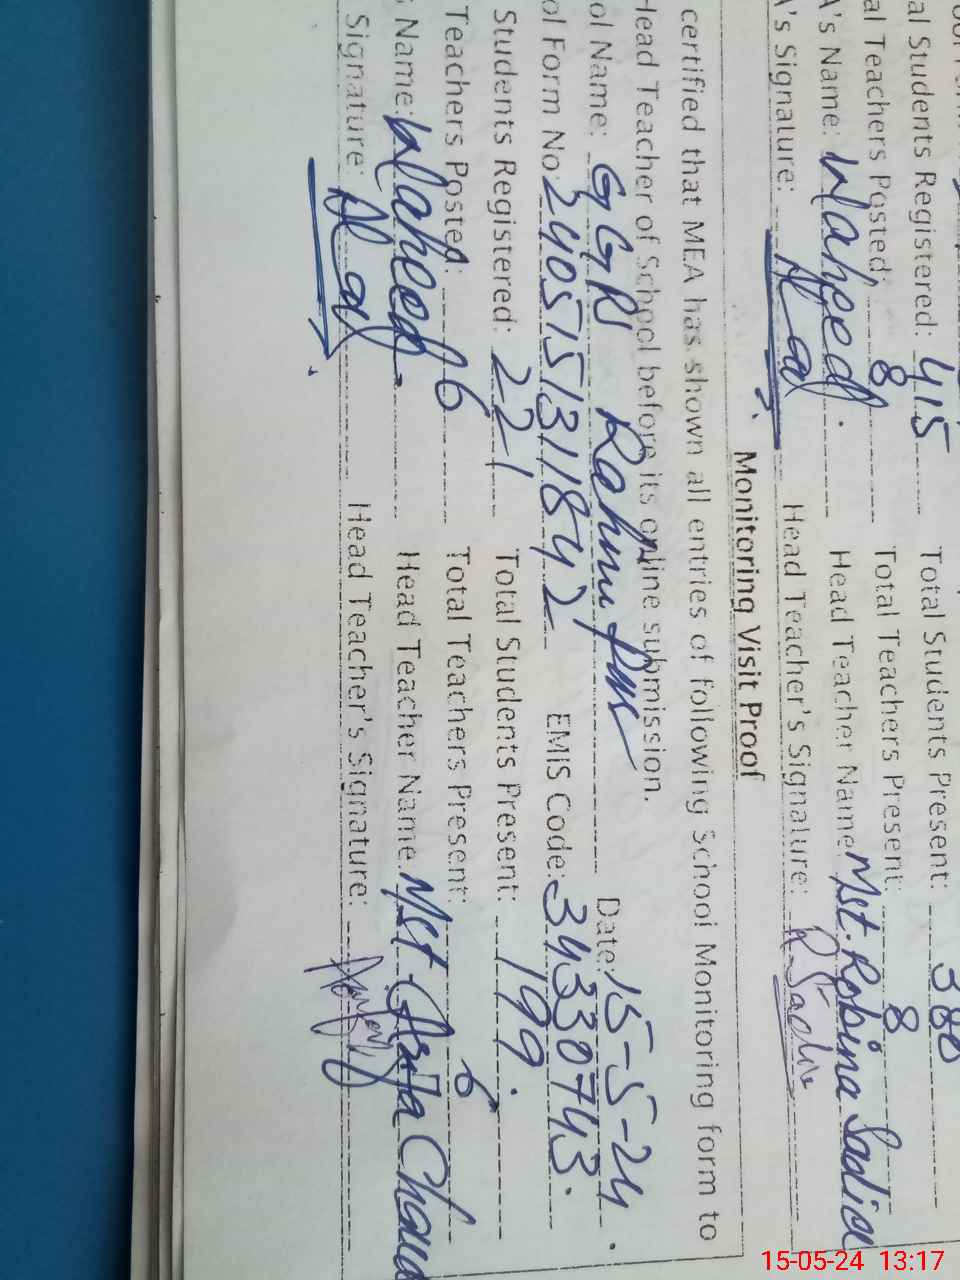 al Students Registered: 415 Total Students Present: 380
al Teachers Posted: 8 Total Teachers Present: 8
A's Name: Waheed. Head Teacher Name: Mst. Robina Sadia
A's Signature: Head Teacher's Signature:
Monitoring Visit Proof
certified that MEA has shown all entries of following School Monitoring form to
Head Teacher of School before its online submission.
ol Name: GGPS Rahim Pur Date: 15-5-24.
ol Form No: 2405151311842 EMIS Code: 34330743.
Students Registered: 221 Total Students Present: 199.
Teachers Posted: 6 Total Teachers Present: 6
Name: Waheed. Head Teacher Name: Mst
Signature: Head Teacher's Signature:
15-05-24 13:17